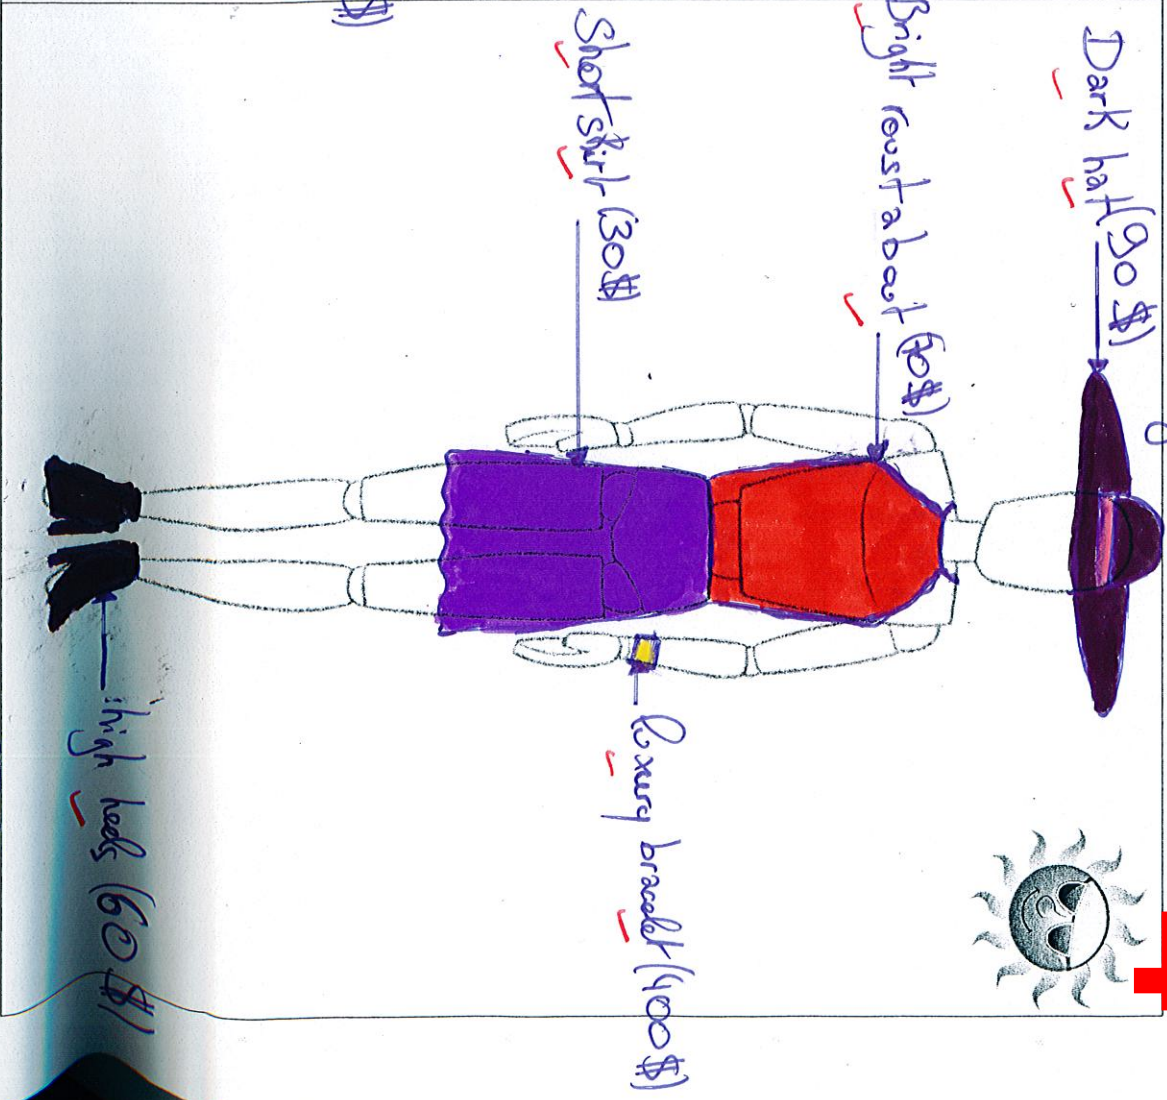 Dark hat (90$)
Bright roustabout (70$)
Short skirt (30$)
$)
luxury bracelet (400$)
high heels (60$)